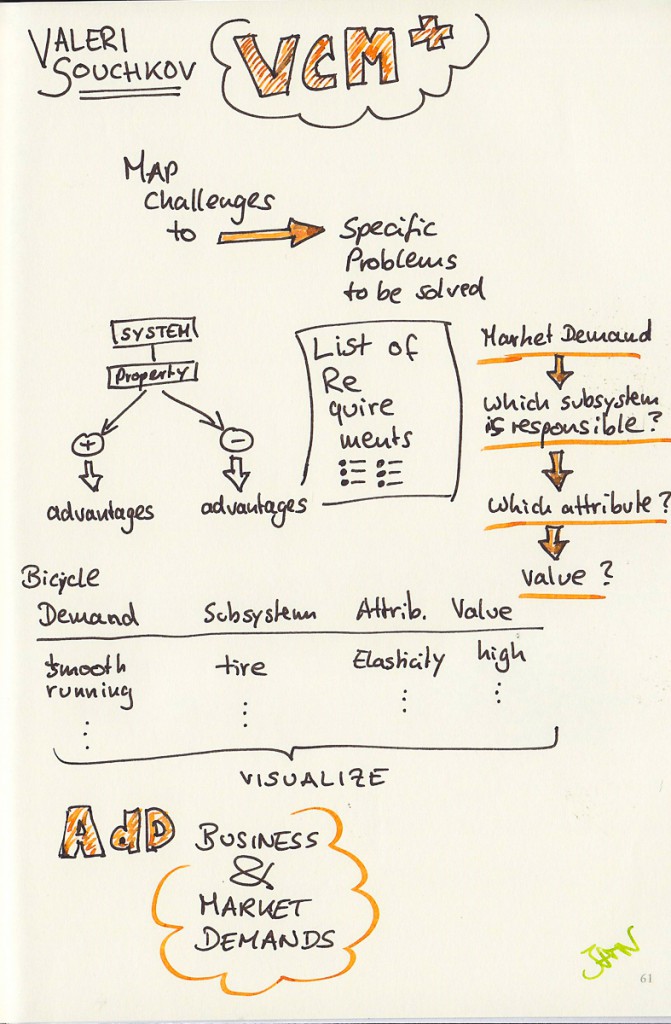 VALERI
SOUCHKOV
VCM+
MAP
Challenges
to
Specific
Problems
to be solved
SYSTEM
Property
+
-
advantages
advantages
List of
Re
quire
ments
Market Demand
which subsystem
is responsible?
which attribute?
value?
Bicycle
Demand Subsystem Attrib. Value
smooth tire Elasticity high
running
VISUALIZE
AdD BUSINESS
&
MARKET
DEMANDS
61